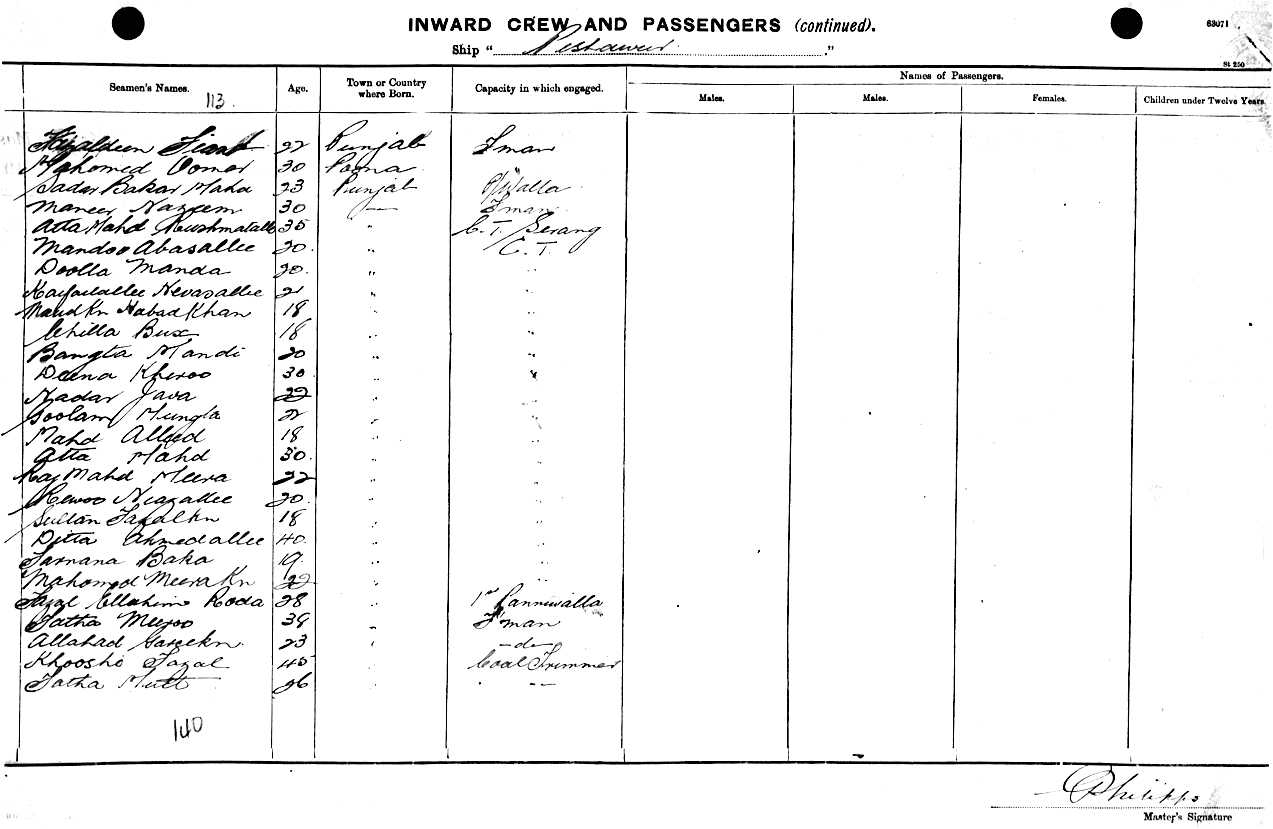 INWARD CREW AND PASSENGERS (continued).
63071
Ship " Peshawur "
St 250
Seamen's Names. Age. Town or Country where Born. Capacity in which engaged. Names of Passengers.
Males. Males. Females. Children under Twelve Years.
113.
22 Punjab Fman
Mahomed Oomer 30 Poona
Sadar Bakar Mahd 23 Punjab P/Walla
Maneer Nazeem 30 — Fman
Atta Mahd 35 " C. T. Serang
Mandoo Abasallee 20. " C. T.
Doolla Manda 20. " "
Nevasallee 21 " "
Khan 18 " "
Chilla Bux 18 " "
Bangta Mandi 20 " "
Deena Kheroo 30 " "
Nadar Java 22 " "
Goolam Mungta 22 " "
Mahd Alleed 18 " "
Atta Mahd 30. " "
Raj Mahd Meera 22 " "
Niazallee 20. " "
Sultan Fazalkn 18 " "
Ditta Ahmedallee 40. " "
Baka 19. " "
Mahomed Meerakn 22 " "
Fazal Ellahim Roda 28 " 1st Panniwalla
Fatha Meeroo 38 " Fman
Allahad 23 " —do—
Khoosho Fazal 45 " Coal Trimmer
Fatha Mutt 26 " " — "
140
Philipps
Master's Signature